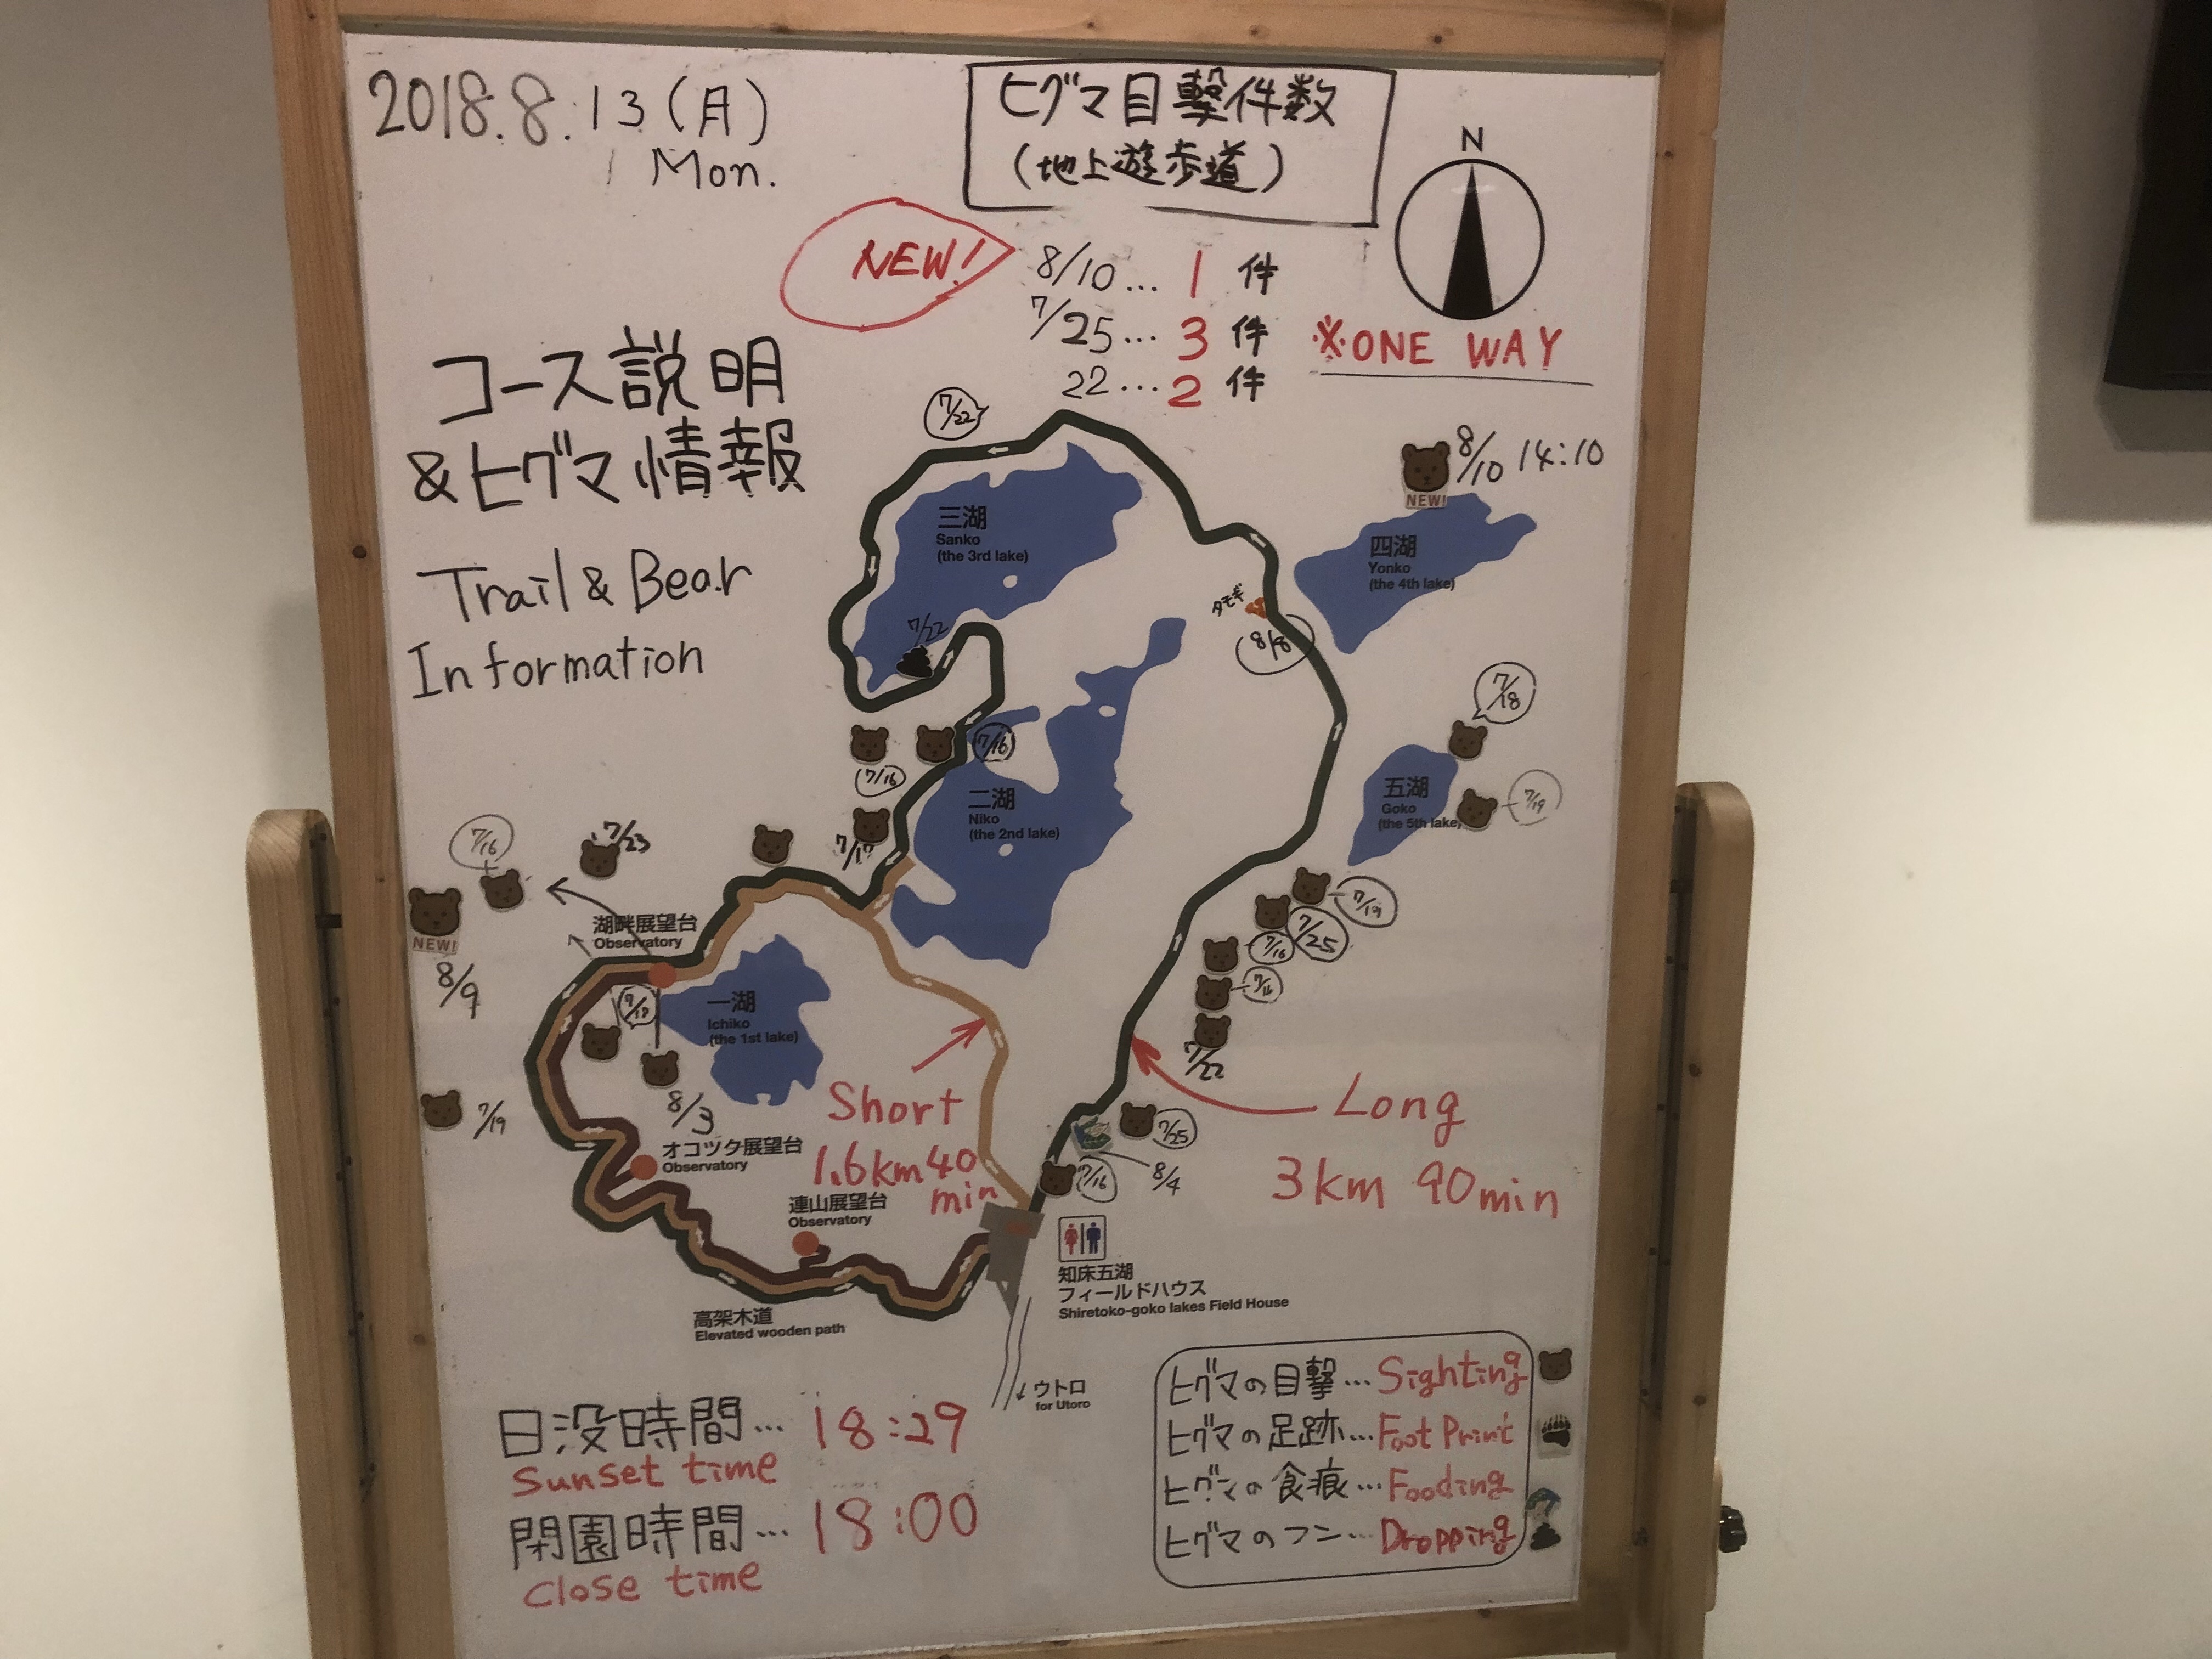 2018.8.13(月)
Mon.
ヒグマ目撃件数
(地上遊歩道)
N
NEW!
8/10... 1 件
7/25... 3 件
22... 2 件
※ONE WAY
コース説明
&ヒグマ情報
Trail & Bear
Information
7/22
8/10 14:10
NEW!
三湖
Sanko
(the 3rd lake)
四湖
Yonko
(the 4th lake)
タモギ
8/8
7/22
7/18
7/16
7/16
五湖
Goko
(the 5th lake)
7/19
二湖
Niko
(the 2nd lake)
7/17
7/16
7/23
NEW!
8/9
湖畔展望台
Observatory
7/19
7/25
7/16
7/16
7/22
7/18
一湖
Ichiko
(the 1st lake)
8/3
7/19
Short
1.6km 40
min
Long
3km 90min
7/25
7/16
8/4
オコツク展望台
Observatory
連山展望台
Observatory
知床五湖
フィールドハウス
Shiretoko-goko lakes Field House
高架木道
Elevated wooden path
ウトロ
for Utoro
日没時間... 18:29
Sunset time
閉園時間... 18:00
Close time
ヒグマの目撃...Sighting
ヒグマの足跡...Foot Print
ヒグマの食痕...Fooding
ヒグマのフン...Dropping